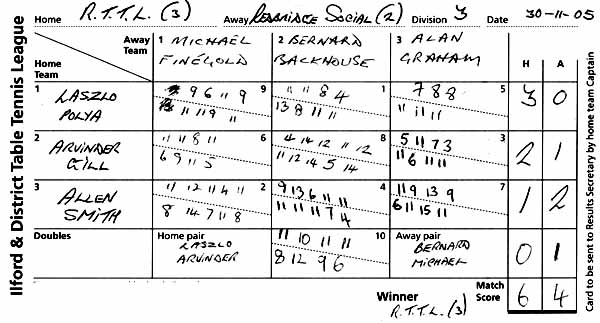 Ilford & District Table Tennis League
Home R.T.T.L. (3) Away REDBRIDGE SOCIAL (2) Division 3 Date 30-11-05
Away Team
Home Team
1 MICHAEL FINEGOLD
2 BERNARD BACKHOUSE
3 ALAN GRAHAM
H A
1 LASZLO POLYA
9 6 11 9 9
11 11 9 11
11 11 8 4 1
13 8 11 11
7 8 8 5
11 11 11
3 0
2 ARVINDER GILL
11 11 8 11 6
6 9 11 5
12 11 8 12 8
11 12 14 5 14
5 11 7 3 3
11 6 11 11
2 1
3 ALLEN SMITH
11 12 11 4 11 2
8 14 7 11 8
9 13 6 11 11 4
11 11 11 7 4
11 9 13 9 7
6 11 15 11
1 2
Doubles
Home pair
LASZLO
ARVINDER
11 10 11 11 10
8 12 9 6
Away pair
BERNARD
MICHAEL
0 1
Winner R.T.T.L. (3)
Match Score 6 4
Card to be sent to Results Secretary by home team Captain